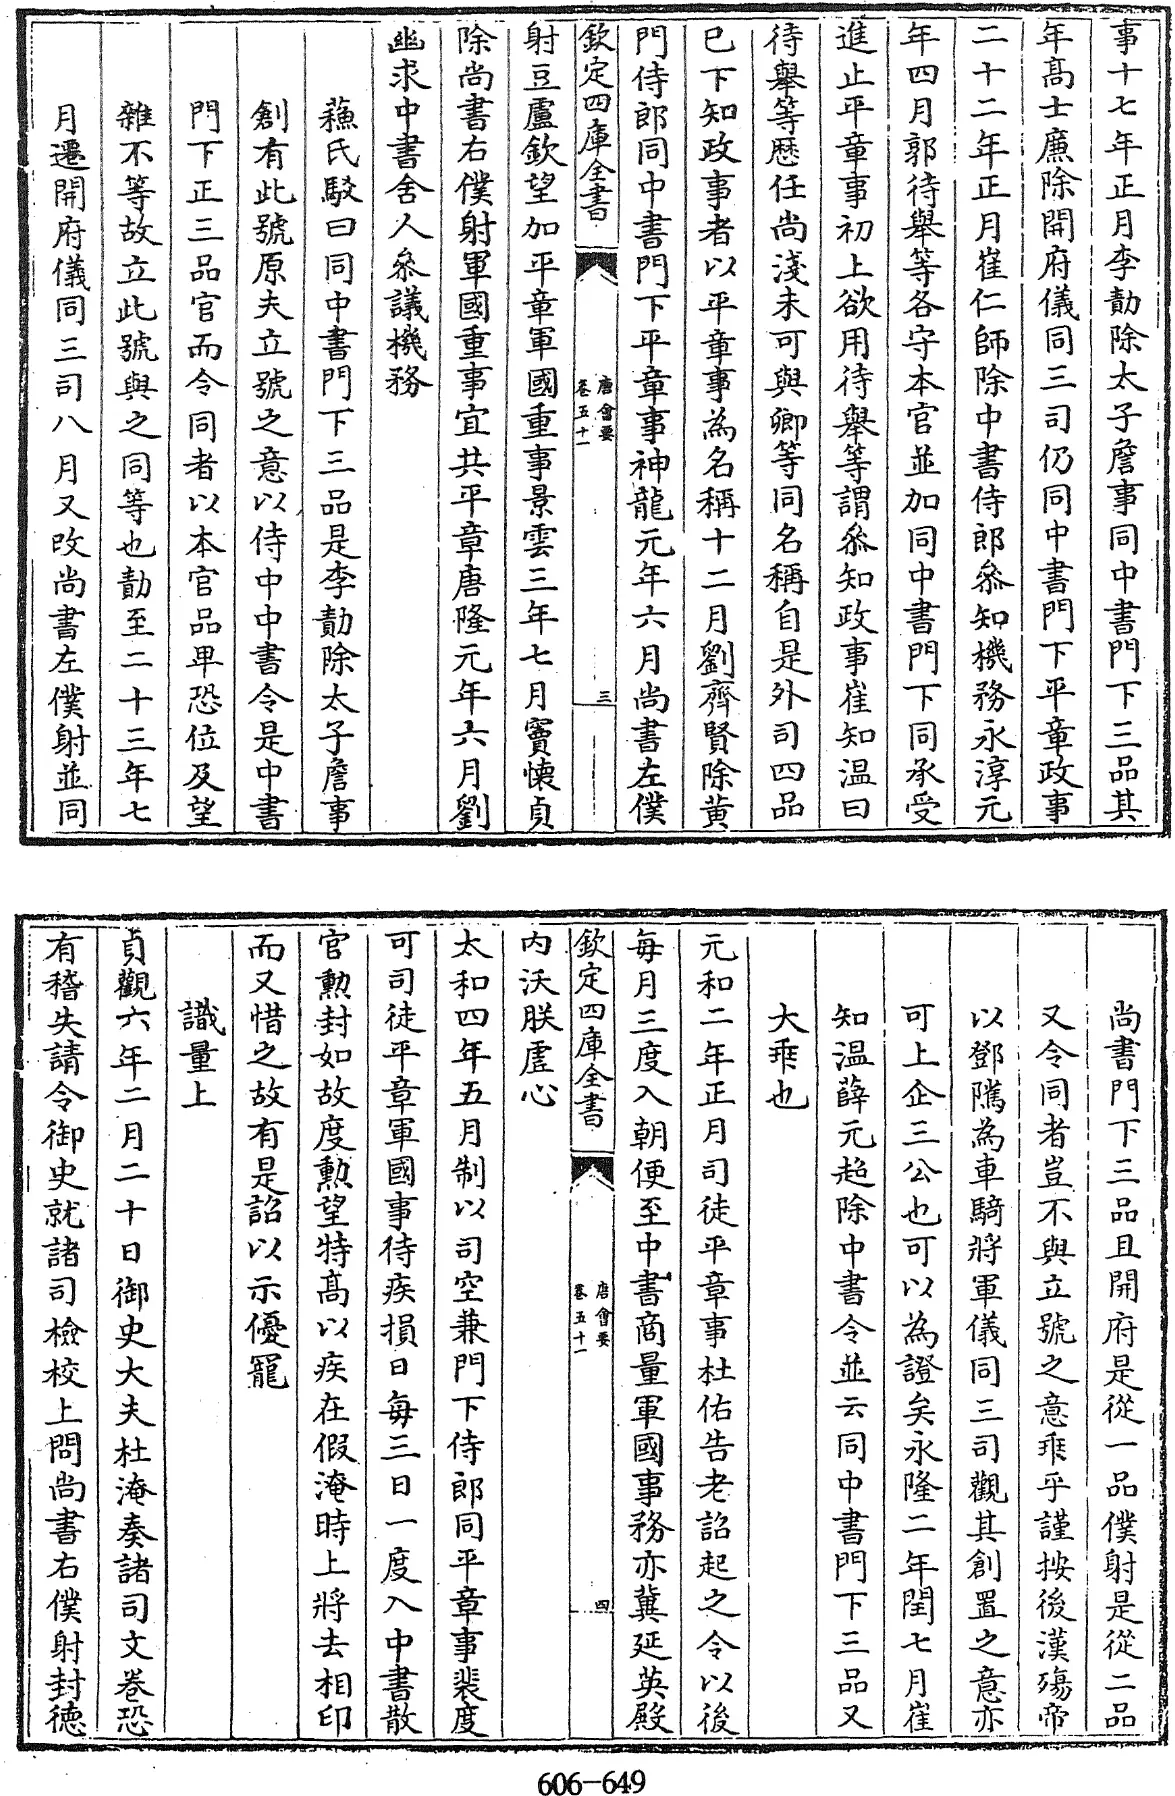 事十七年正月李勣除太子詹事同中書門下三品其
年髙士廉除開府儀同三司仍同中書門下平章政事
二十二年正月崔仁師除中書侍郎叅知機務永淳元
年四月郭待舉等各守本官並加同中書門下同承受
進止平章事初上欲用待舉等謂叅知政事崔知温曰
待舉等歴任尚淺未可與卿等同名稱自是外司四品
已下知政事者以平章事為名稱十二月劉齊賢除黄
門侍郎同中書門下平章事神龍元年六月尚書左僕
欽定四庫全書
唐會要
卷五十一
三
射豆盧欽望加平章軍國重事景雲三年七月竇懐貞
除尚書右僕射軍國重事宜共平章唐隆元年六月劉
幽求中書舍人叅議機務
蘓氏駁曰同中書門下三品是李勣除太子詹事
創有此號原夫立號之意以侍中中書令是中書
門下正三品官而令同者以本官品卑恐位及望
雜不等故立此號與之同等也勣至二十三年七
月遷開府儀同三司八月又改尚書左僕射並同
尚書門下三品且開府是從一品僕射是從二品
又令同者豈不與立號之意乖乎謹按後漢殤帝
以鄧隲為車騎將軍儀同三司觀其創置之意亦
可上企三公也可以為證矣永隆二年閏七月崔
知温薛元超除中書令並云同中書門下三品又
大乖也
元和二年正月司徒平章事杜佑告老詔起之令以後
每月三度入朝便至中書商量軍國事務亦冀延英殿
欽定四庫全書
唐會要
卷五十一
四
内沃朕虚心
太和四年五月制以司空兼門下侍郎同平章事裴度
可司徒平章軍國事待疾損日每三日一度入中書散
官勲封如故度勲望特髙以疾在假淹時上將去相印
而又惜之故有是詔以示優寵
識量上
貞觀六年二月二十日御史大夫杜淹奏諸司文卷恐
有稽失請令御史就諸司檢校上問尚書右僕射封徳
606-649